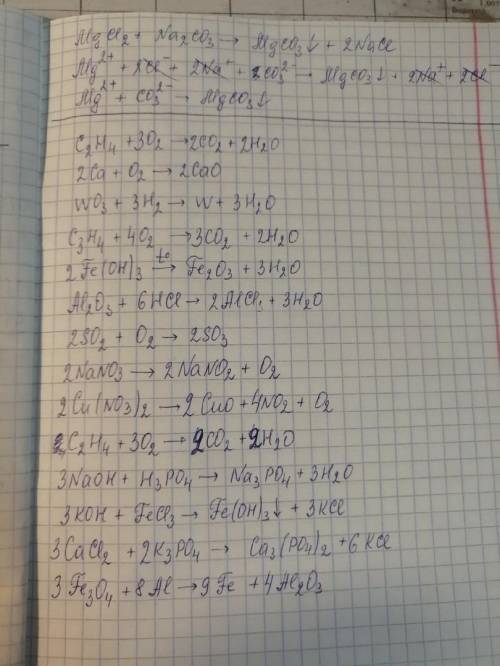 MgCl₂ + Na₂CO₃ → MgCO₃↓ + 2NaCl
Mg²⁺ + 2Cl⁻ + 2Na⁺ + CO₃²⁻ → MgCO₃↓ + 2Na⁺ + 2Cl⁻
Mg²⁺ + CO₃²⁻ → MgCO₃↓
C₂H₄ + 3O₂ → 2CO₂ + 2H₂O
2Ca + O₂ → 2CaO
WO₃ + 3H₂ → W + 3H₂O
C₃H₄ + 4O₂ → 3CO₂ + 2H₂O
2Fe(OH)₃ →t° Fe₂O₃ + 3H₂O
Al₂O₃ + 6HCl → 2AlCl₃ + 3H₂O
2SO₂ + O₂ → 2SO₃
2NaNO₃ → 2NaNO₂ + O₂
2Cu(NO₃)₂ → 2CuO + 4NO₂ + O₂
C₂H₄ + 3O₂ → 2CO₂ + 2H₂O
3NaOH + H₃PO₄ → Na₃PO₄ + 3H₂O
3KOH + FeCl₃ → Fe(OH)₃↓ + 3KCl
3CaCl₂ + 2K₃PO₄ → Ca₃(PO₄)₂ + 6KCl
3Fe₃O₄ + 8Al → 9Fe + 4Al₂O₃